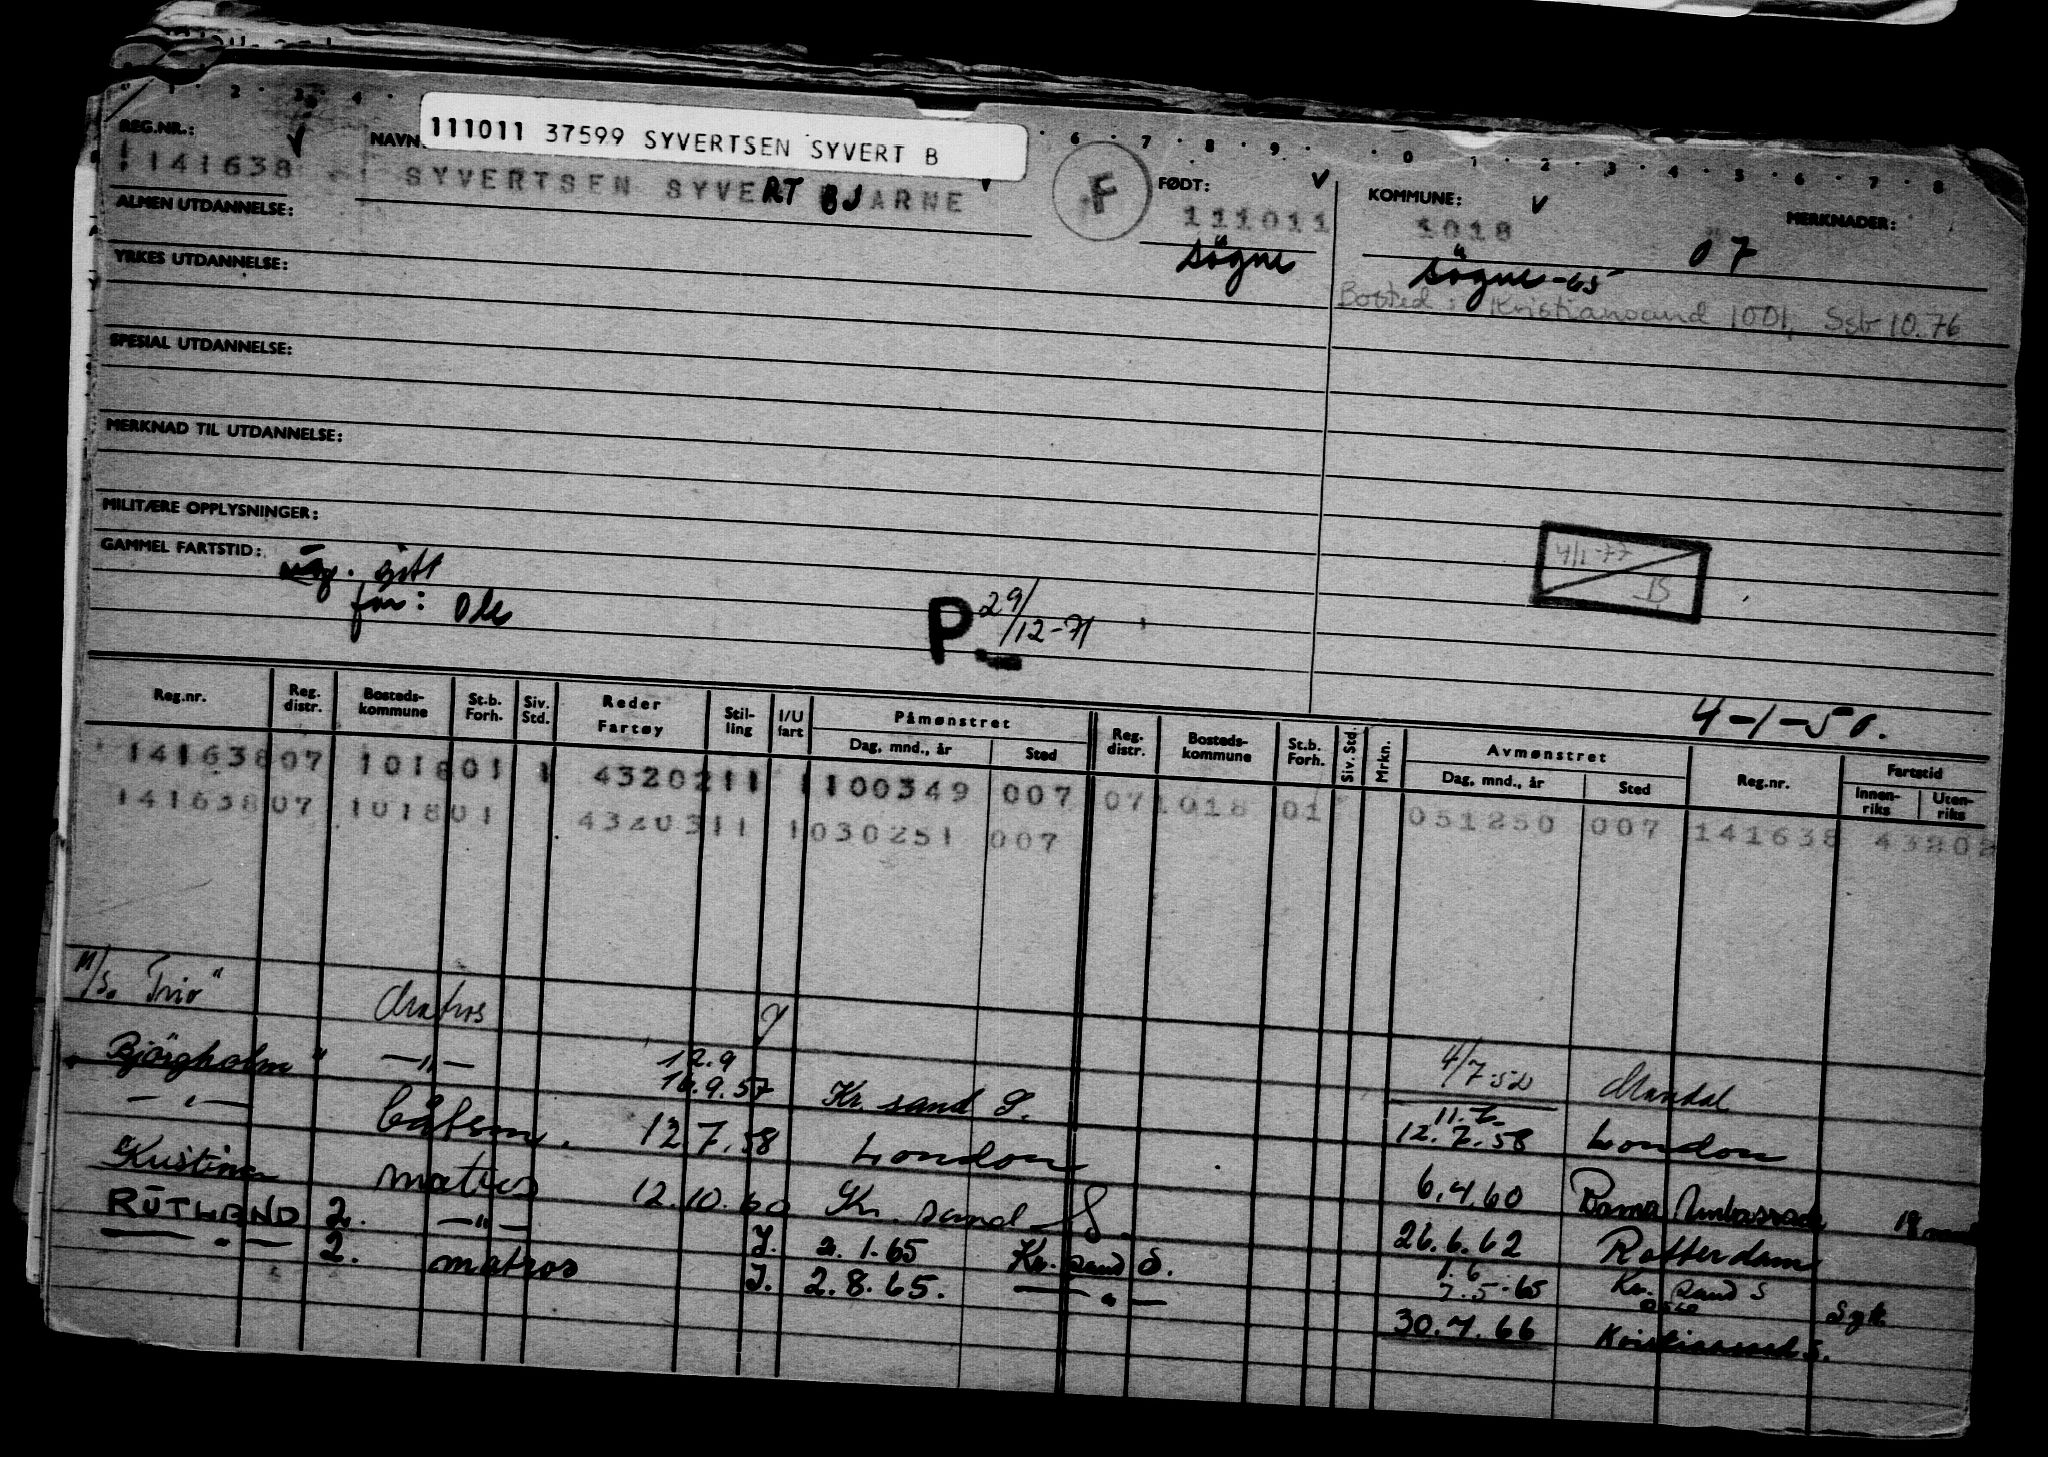 111011 37599 SYVERTSEN SYVERT B
REG.NR.: NAVN: FØDT: KOMMUNE: MERKNADER:
141638 SYVERTSEN SYVERT BJARNE F 111011 1018 07
Søgne Søgne-65
Bosted: Kristiansand 1001, Ssb 10.76
ALMEN UTDANNELSE:
YRKES UTDANNELSE:
SPESIAL UTDANNELSE:
MERKNAD TIL UTDANNELSE:
MILITÆRE OPPLYSNINGER:
GAMMEL FARTSTID:
gift
far: Ole
P. 29/12-71
4/1-77
4-1-50.
Reg.nr. Reg. distr. Bosteds-kommune St.b. Forh. Siv. Std. Reder Fartøy Stil-ling I/U fart Påmønstret Dag, mnd., år Sted Reg. distr. Bosteds-kommune St.b. Forh. Siv. Std. Mrkn. Avmønstret Dag, mnd., år Sted Reg.nr. Fartstid Innen-riks Uten-riks
141638 07 1018 01 1 43202 11 1 100349 007 07 1018 01 051250 007 141638 43202
141638 07 1018 01 43203 11 1 030251 007
M/S. "Trio" Matros 4/7-52 Mandal
Bjørgholm" —"— 12.9 16.9.57 Kr. sand S. 11.7. 12.7.58 London
—"— båtsm. 12.7.58 London 6.4.60
"Kristina matros 12.10.60 Kr. sand S. 26.6.62 Rotterdam
RUTLAND 2. —"— I. 2.1.65 Kr. sand S. 1.6 7.5-65 Kr. sand S
—"— 2. matros I. 2.8.65. —"— 30.4.66 Kristiansand S.